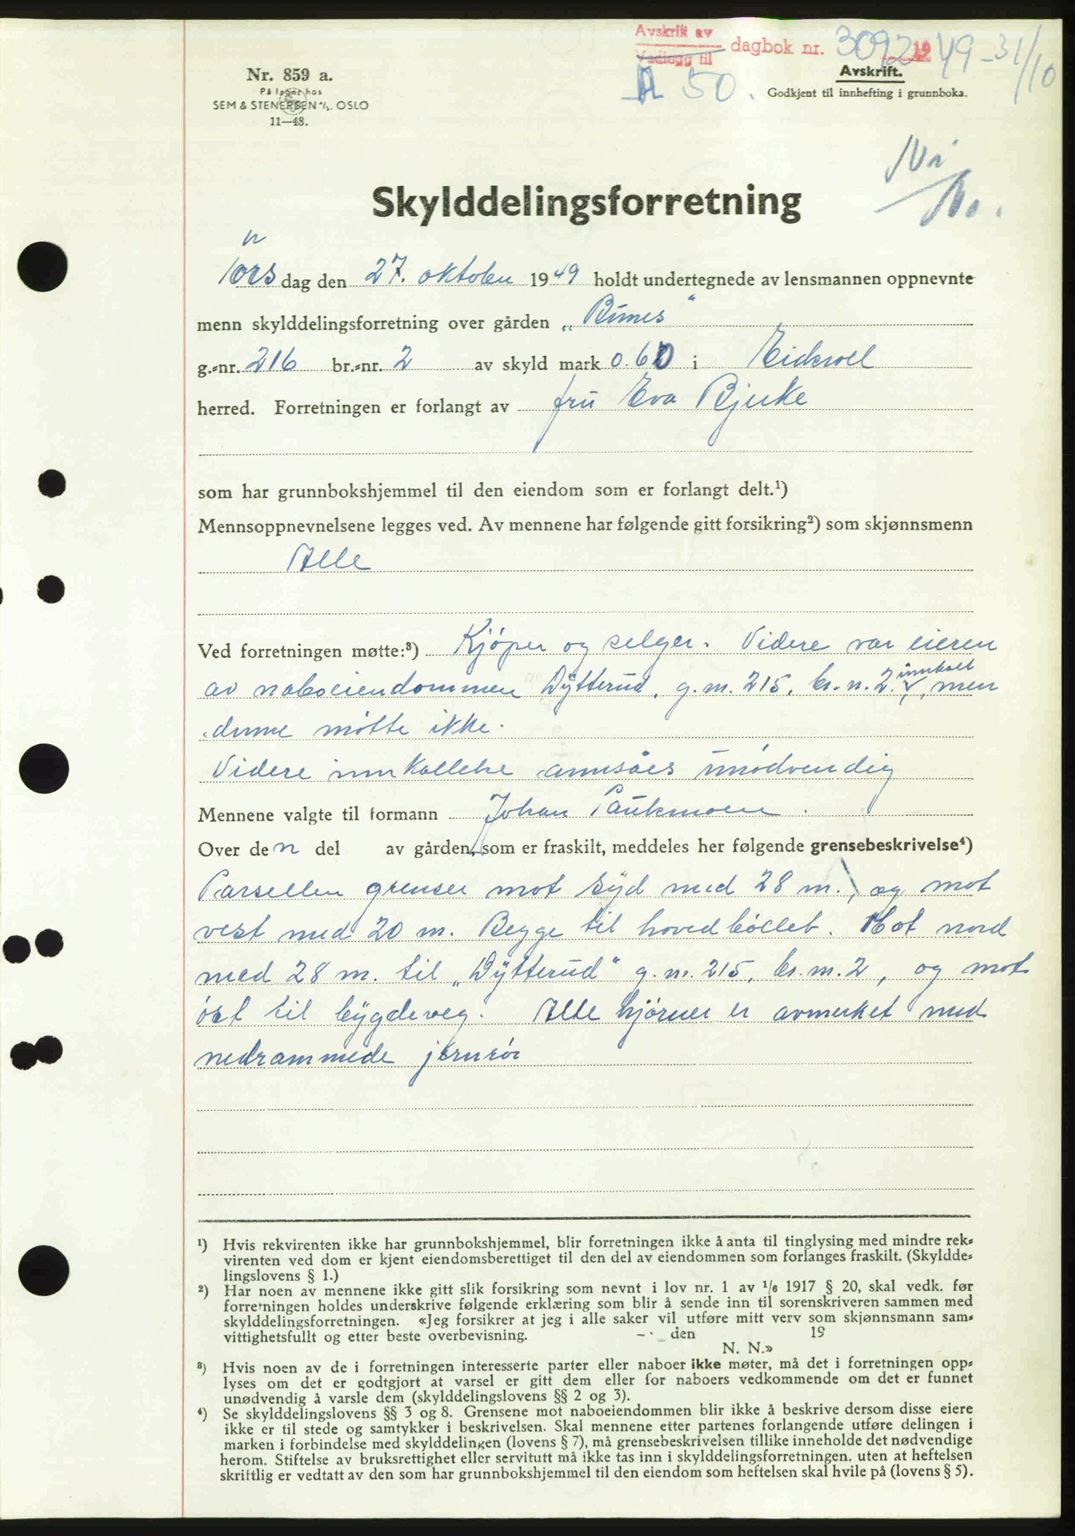 Avskrik av
Vedlegg til
dagbok nr. 3092 1949 - 31/10
A 50.
Avskrift.
Godkjent til innhefting i grunnboka.
Nr. 859 a.
På lager hos
SEM & STENERSEN A/S. OSLO
11—48.
Skylddelingsforretning
Torsdag den 27. oktober 1949 holdt undertegnede av lensmannen oppnevnte
menn skylddelingsforretning over gården „Bünes“
g.-nr. 216 br.-nr. 2 av skyld mark 0.60 i Eidsvoll
herred. Forretningen er forlangt av fru Eva Bjerke
som har grunnbokshjemmel til den eiendom som er forlangt delt.¹)
Mennsoppnevnelsene legges ved. Av mennene har følgende gitt forsikring²) som skjønnsmenn
Alle
Ved forretningen møtte:³) Kjøper og selger. Videre var eieren
av naboeiendommen Dytterud, g.nr. 215, br.n. 2. innkalt, men
denne møtte ikke.
Videre innkallelse ansåes unødvendig
Mennene valgte til formann Johan Paukmoen.
Over den del av gården, som er fraskilt, meddeles her følgende grensebeskrivelse⁴)
Parsellen grenser mot syd med 28 m., og mot
vest med 20 m. Begge til hovedbøllet. Mot nord
med 28 m. til „Dytterud“ g.nr. 215, br.nr. 2, og mot
øst til bygdeveg. Alle hjørner er avmerket med
nedrammede jernrør
¹) Hvis rekvirenten ikke har grunnbokshjemmel, blir forretningen ikke å anta til tinglysing med mindre rek-
virenten ved dom er kjent eiendomsberettiget til den del av eiendommen som forlanges fraskilt. (Skyldde-
lingslovens § 1.)
²) Har noen av mennene ikke gitt slik forsikring som nevnt i lov nr. 1 av 1/6 1917 § 20, skal vedk. før
forretningen holdes underskrive følgende erklæring som blir å sende inn til sorenskriveren sammen med
skylddelingsforretningen. «Jeg forsikrer at jeg i alle saker vil utføre mitt verv som skjønnsmann sam-
vittighetsfullt og etter beste overbevisning. den 19
N. N.»
³) Hvis noen av de i forretningen interesserte parter eller naboer ikke møter, må det i forretningen opp-
lyses om det er godtgjort at varsel er gitt dem eller for naboers vedkommende om det er funnet
unødvendig å varsle dem (skylddelingslovens §§ 2 og 3).
⁴) Se skylddelingslovens §§ 3 og 8. Grensene mot naboeiendommen blir ikke å beskrive dersom disse eiere
ikke er til stede og samtykker i beskrivelsen. Skal mennene etter partenes forlangende utføre delingen i
marken i forbindelse med skylddelingen (lovens § 7), må grensebeskrivelsen tillike inneholde det nødvendige
herom. Stiftelse av bruksrettighet eller servitutt må ikke tas inn i skylddelingsforretningen, uten at heftelsen
skriftlig er vedtatt av den som har grunnbokshjemmel til den eiendom som heftelsen skal hvile på (lovens § 5).